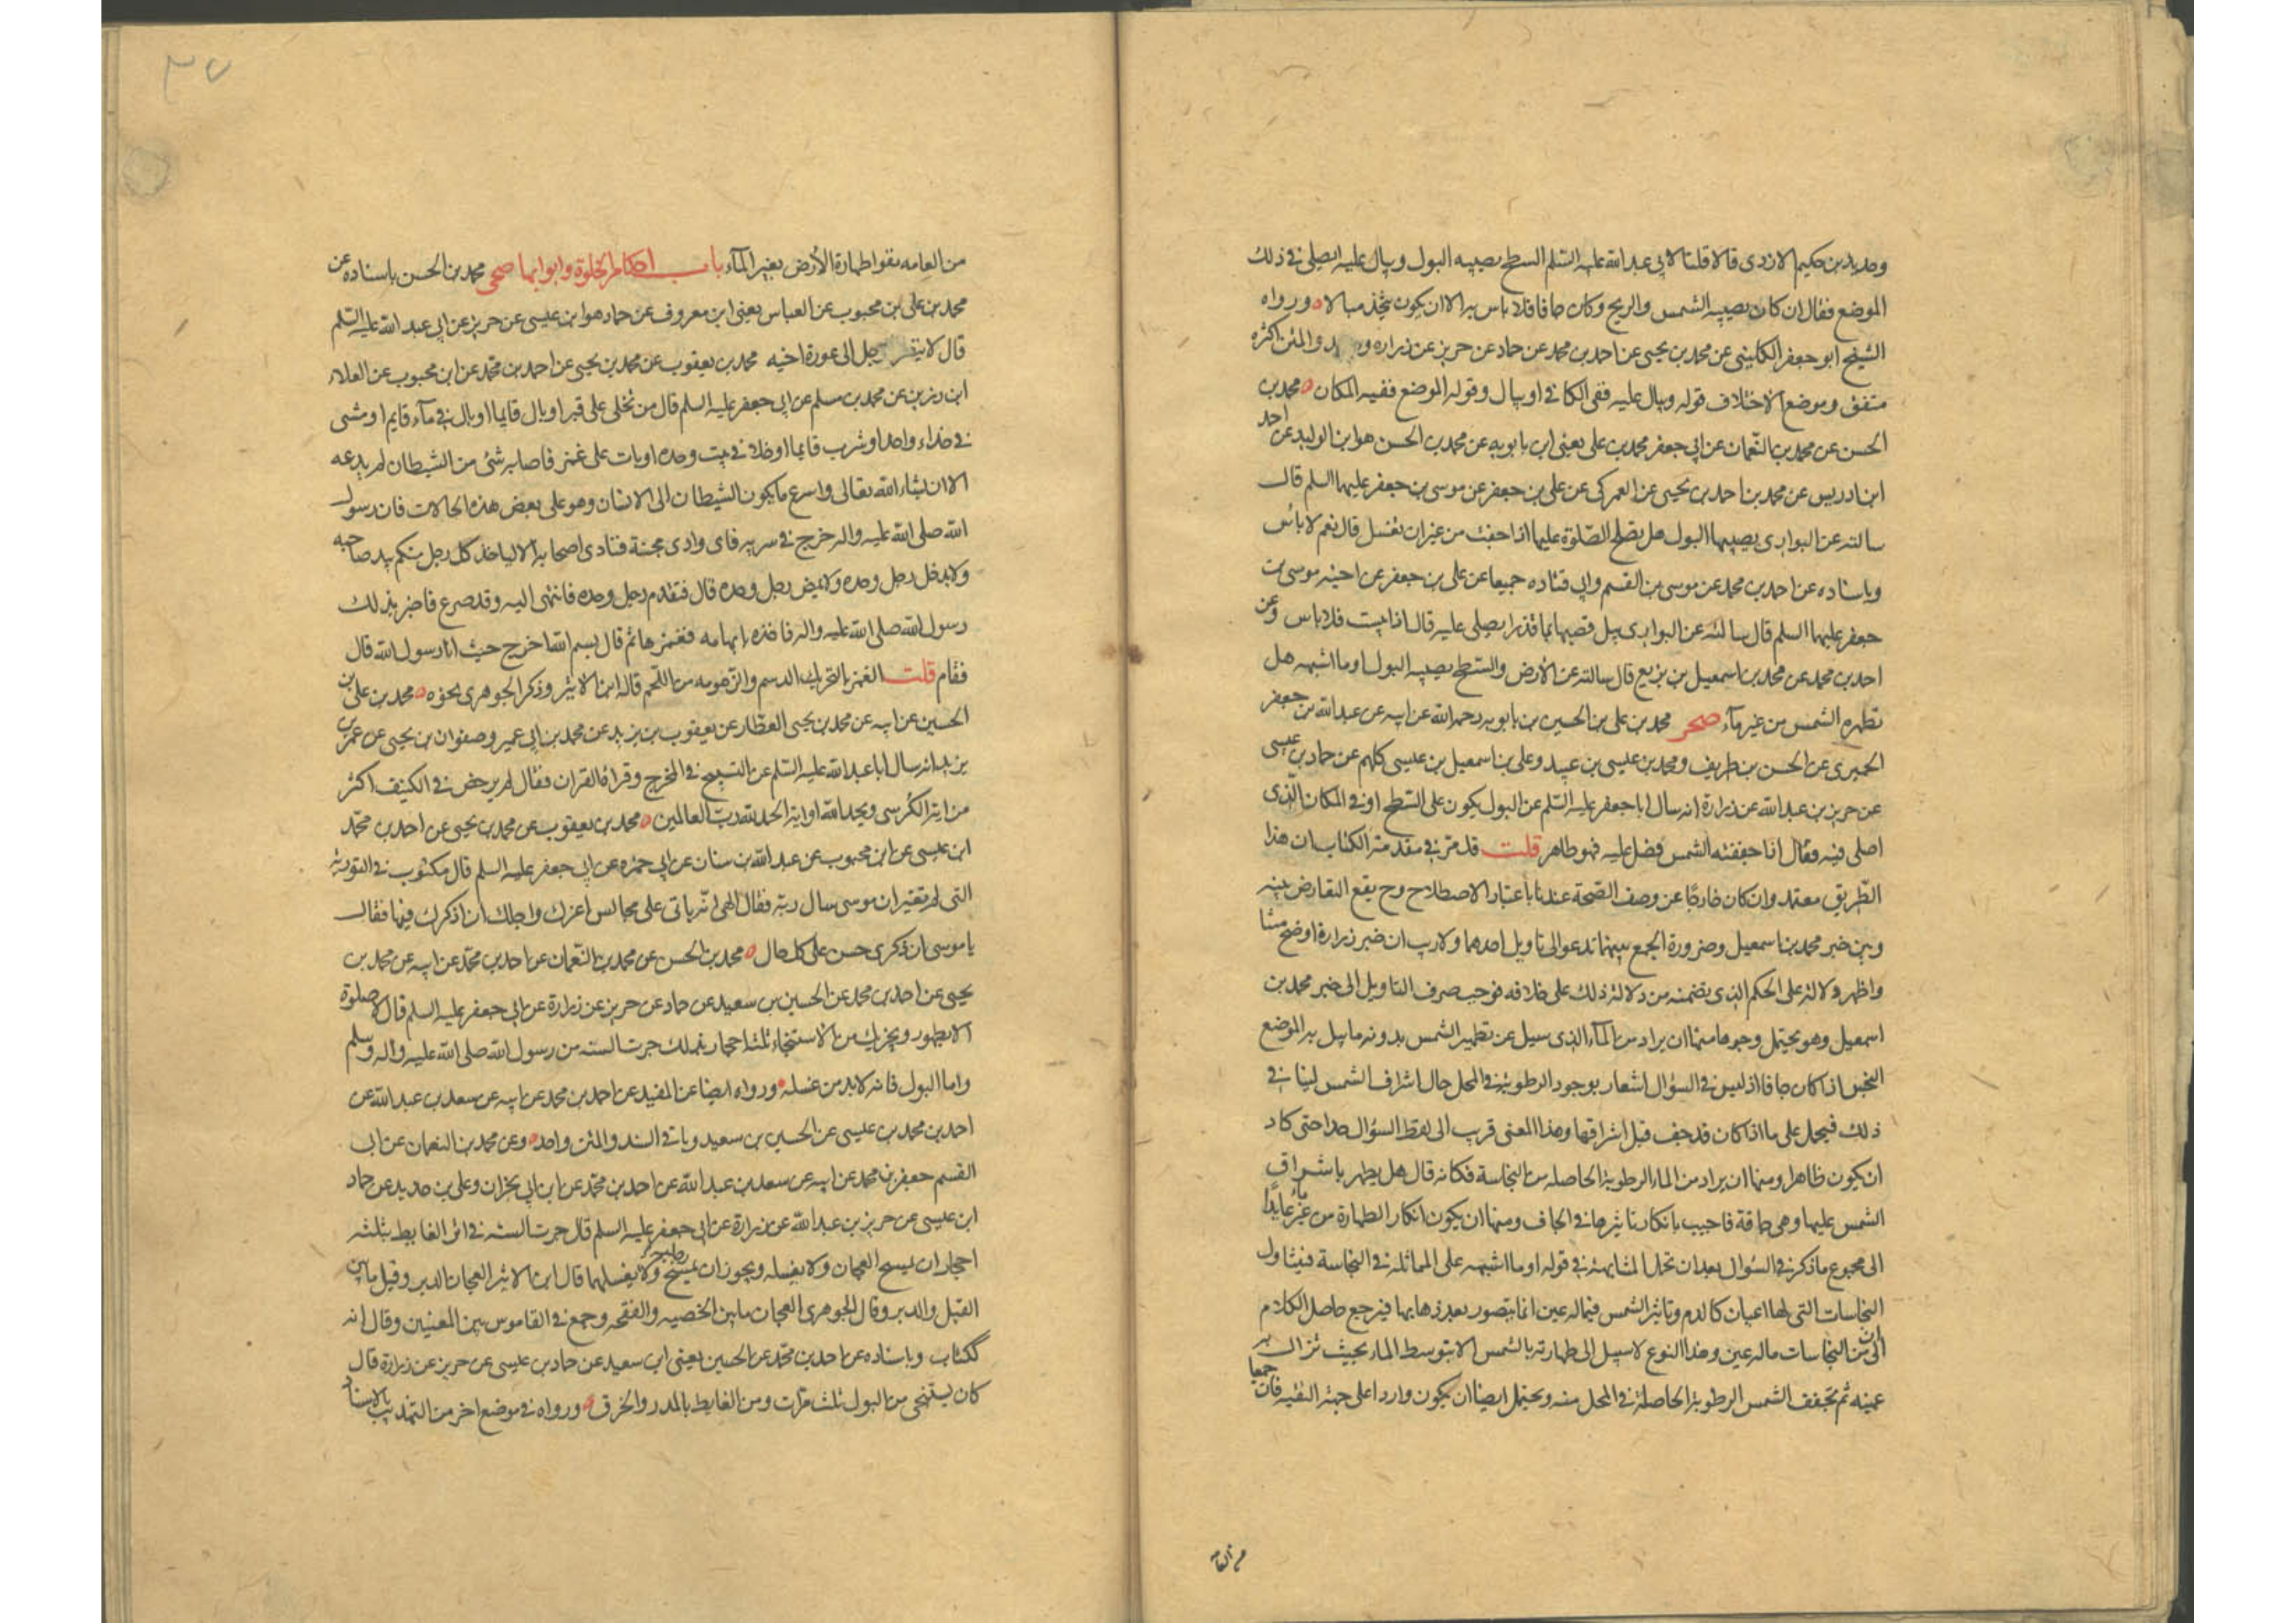 وحديد بن حكيم الازدى قالا قلنا لابى عبد الله عليه السلم السطح يصيبه البول ويبال عليه ايصلى في ذلك
الموضع فقال ان كان يصيبه الشمس والريح وكان جافا فلا باس به الا ان يكون يتخذ مبالا ه ورواه
الشيخ ابو جعفر الكلينى عن محمد بن يحيى عن احمد بن محمد عن حماد عن حريز عن زراره والمتن اكثره
متفق وموضع الاختلاف قوله ويبال عليه ففى الكافى او يبال وقوله الموضع ففيه المكان ه محمد بن
الحسن عن محمد بن النعمان عن ابى جعفر محمد بن على يعنى ابن بابويه عن محمد بن الحسن هو ابن الوليد عن احمد
ابن ادريس عن محمد بن احمد بن يحيى عن العمركى عن على بن جعفر عن موسى بن جعفر عليهما السلم قال
سالته عن البوارى يصيبها البول هل يصلح الصلوة عليها اذا جفت من غير ان تغسل قال نعم لا باس
وباسناده عن احمد بن محمد عن موسى بن القسم وابى قتاده جميعا عن على بن جعفر عن اخيه موسى بن
جعفر عليهما السلم قال سالته عن البوارى يبل قصبها بماء قذر ايصلى عليه قال اذا يبست فلا باس وعن
احمد بن محمد عن محمد بن اسمعيل بن بزيع قال سالته عن الارض والسطح يصيبه البول او ما اشبهه هل
تطهره الشمس من غير مآء صحر محمد بن على بن الحسين بن بابويه رحمه الله عن ابيه عن عبد الله بن جعفر
الحميرى عن الحسن بن ظريف ومحمد بن عيسى بن عبيد وعلى بن اسمعيل بن عيسى كلهم عن حماد بن عيسى
عن حريز بن عبد الله عن زرارة انه سال ابا جعفر عليه السلم عن البول يكون على السطح او في المكان الذى
اصلى فيه فقال اذا جففته الشمس فصل عليه فهو طاهر قلت قد مر في مقدمة الكتاب ان هذا
الطريق معتمد وان كان خارجا عن وصف الصحة عندنا باعتبار الاصطلاح وح يقع التعارض بينه
وبين خبر محمد بن اسمعيل وضرورة الجمع بينهما تدعو الى تاويل احدهما ولا ريب ان خبر زرارة اوضح متنا
واظهر دلالة على الحكم الذى تضمنه من دلالة ذلك على خلافه فوجب صرف التاويل الى خبر محمد بن
اسمعيل وهو يحتمل وجوها منها ان يراد من المآء الذى سيل عن تطهير الشمس بدونه ما يبل به الموضع
النجس اذا كان جافا اذ ليس في السؤال اشعار بوجود الرطوبة في المحل حال اشراف الشمس لينافى
ذلك فيحمل على ما اذا كان قد جف قبل اشراقها وهذا المعنى قريب الى لفظ السؤال جدا حتى كاد
ان يكون ظاهرا ومنها ان يراد من الماء الرطوبة الحاصله من النجاسة فكانه قال هل يطهر باشراق
الشمس عليها وهى جافة فاجيب بانكار تاثيرها في الجاف ومنها ان يكون انكار الطهارة من غير ماء عايدا
الى مجموع ما ذكر في السؤال بعد ان تحمل المشابهة في قوله او ما اشبهه على المماثلة في النجاسة فيتناول
النجاسات التى لها اعيان كالدم وتاثير الشمس فيما له عين انما يتصور بعد ذهابها فيرجع حاصل الكلام
الى ان من النجاسات ما له عين وهذا النوع لا سبيل الى طهارته بالشمس الا بتوسط الماء بحيث تزال به
عينه ثم تجفف الشمس الرطوبة الحاصلة في المحل منه ويحتمل ايضا ان يكون واردا على جهة التقيه فان جمعا
من العامه
من العامه نفوا طهارة الارض بغير المآء باب احكام الخلوة وابوابها صحى محمد بن الحسن باسناده عن
محمد بن على بن محبوب عن العباس يعنى ابن معروف عن حماد هو ابن عيسى عن حريز عن ابى عبد الله عليه السلم
قال لا ينظر رجل الى عورة اخيه محمد بن يعقوب عن محمد بن يحيى عن احمد بن محمد عن ابن محبوب عن العلاء
ابن رزين عن محمد بن مسلم عن ابى جعفر عليه السلم قال من تخلى على قبر او بال قايما او بال في مآء قايم او مشى
في حذاء واحد او شرب قايما او خلا في بيت وحده او بات على غمر فاصابه شئ من الشيطان لم يدعه
الا ان يشاء الله تعالى واسرع ما يكون الشيطان الى الانسان وهو على بعض هذه الحالات فان رسول
الله صلى الله عليه واله خرج في سريه فاتى وادى مجنة فنادى اصحابه الا لياخذ كل رجل منكم بيد صاحبه
ولا يدخل رجل وحده ولا يمض رجل وحده قال فتقدم رجل وحده فانتهى اليه وقد صرع فاخبر بذلك
رسول الله صلى الله عليه واله فاخذه بابهامه فغمزها ثم قال بسم الله اخرج حيث انا رسول الله قال
فقام قلت الغمر بالتحريك الدسم والزهومه من اللحم قاله ابن الاثير وذكر الجوهرى نحوه ه محمد بن على بن
الحسين عن ابيه عن محمد بن يحيى العطار عن يعقوب بن يزيد عن محمد بن ابى عمير وصفوان بن يحيى عن عمر بن
يزيد انه سال ابا عبد الله عليه السلم عن التسبيح في المخرج وقراءة القران فقال لم يرخص في الكنيف اكثر
من اية الكرسى ويحمد الله او اية الحمد لله رب العالمين ه محمد بن يعقوب عن محمد بن يحيى عن احمد بن محمد
ابن عيسى عن ابن محبوب عن عبد الله بن سنان عن ابى حمزه عن ابى جعفر عليه السلم قال مكتوب في التورية
التى لم تغير ان موسى سال ربه فقال الهى انه ياتى على مجالس اعزك واجلك ان اذكرك فيها فقال
يا موسى ان ذكرى حسن على كل حال ه محمد بن الحسن عن محمد بن النعمان عن احمد بن محمد عن ابيه عن محمد بن
يحيى عن احمد بن محمد عن الحسين بن سعيد عن حماد عن حريز عن زرارة عن ابى جعفر عليه السلم قال لا صلوة
الا بطهور ويجزيك من الاستنجاء ثلثة احجار بذلك جرت السنه من رسول الله صلى الله عليه واله وسلم
واما البول فانه لا بد من غسله ه ورواه ايضا عن المفيد عن احمد بن محمد عن ابيه عن سعد بن عبد الله عن
احمد بن محمد بن عيسى عن الحسين بن سعيد وباقى السند والمتن واحد ه وعن محمد بن النعمان عن ابى
القسم جعفر بن محمد عن ابيه عن سعد بن عبد الله عن احمد بن محمد عن ابن ابى نجران وعلى بن حديد عن حماد
ابن عيسى عن حريز بن عبد الله عن زرارة عن ابى جعفر عليه السلم قال جرت السنه في اثر الغايط بثلثه
احجار ان يمسح العجان ولا يغسله ويجوز ان يمسح رجليه ولا يغسلهما قال ابن الاثير العجان الدبر وقيل ما بين
القبل والدبر وقال الجوهرى العجان ما بين الخصيه والفقحه وجمع في القاموس بين المعنيين وقال انه
ككتاب وباسناده عن احمد بن محمد عن الحسين يعنى ابن سعيد عن حماد بن عيسى عن حريز عن زرارة قال
كان يستنجى من البول ثلث مرات ومن الغايط بالمدر والخرق ه ورواه في موضع اخر من التهذيب بالاسناد